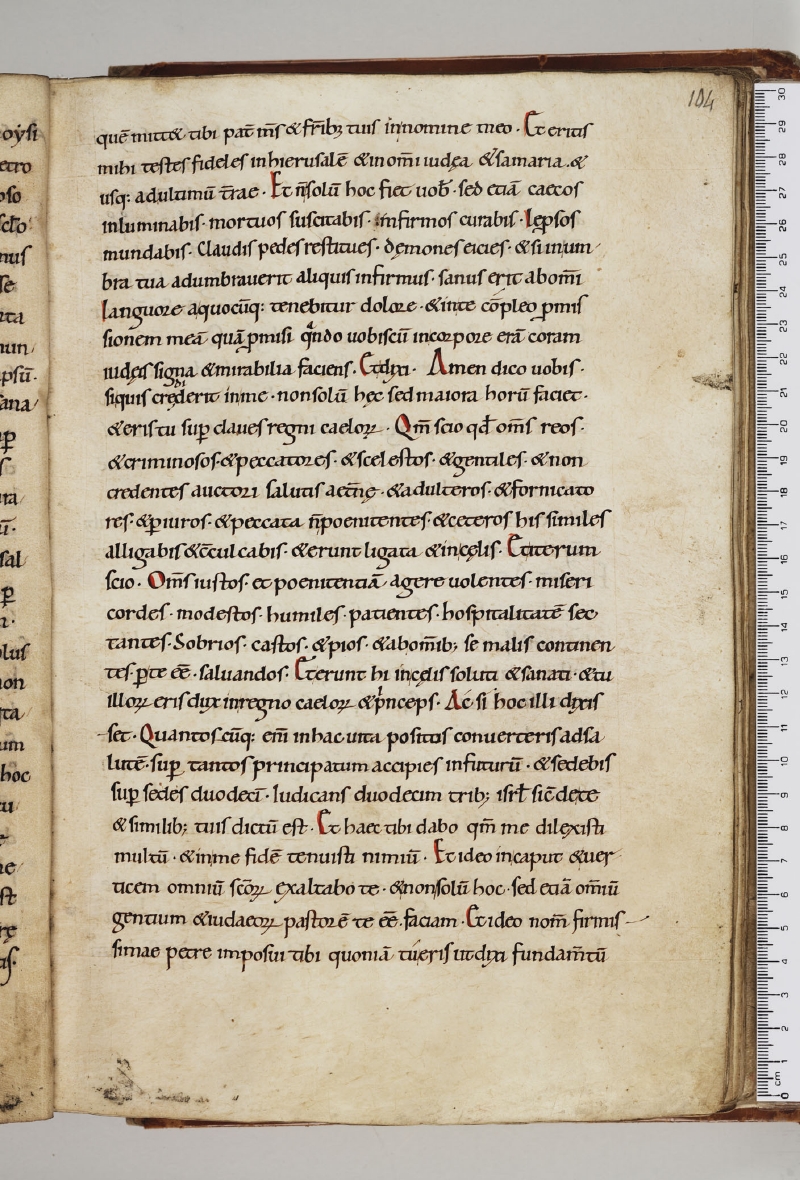 104
quē mitt& tibi pat̄ m̄s & fr̄ib; tuis innomine meo · Et eritis
mihi testes fideles inhierusalē & inom̄i iudęa & samaria · &
usq: adultimū t̄rae · Et n̄ solū hoc fiet uob̄ · sed etiā caecos
inluminabis · mortuos suscitabis · infirmos curabis · lepsos
mundabis · Claudis pedes restitues · demones eicies · & si inum
bra tua adumbrauerit aliquis infirmus · sanus erit abom̄i
languore aquocūq: tenebitur dolore · & inte cōpleo ꝓmis
sionem meā quā ꝓmisi qn̄do uobiscū incorpore erā coram
iudęis signa & mirabilia faciens · Et dixi · Amen dico uobis ·
siquis crediderit inme · nonsolū hęc sed maiora horū faciet ·
& eris tu sup̄ claues regni caeloꝝ · Qm̄ scio qd̄ om̄s reos ·
& criminosos · & peccatores · & scelestos · & gentiles · & non
credentes auctori salutis aet̄nę · & adulteros · & fornicato
res · & ꝑiuros · & peccata n̄ poenitentes · & ceteros his similes
alligabis & c̄culcabis · & erunt ligata & incęlis · Et iterum
scio · Om̄s iustos · et poenitentiā agere uolentes · miseri
cordes · modestos · humiles · patientes · hospitalitatē sec
tantes · Sobrios · castos · & pios · & abom̄ib; se malis continen
tes · ꝑte ēē · saluandos · Et erunt hi incęlis soluti & sanati · & tu
illoꝝ eris dux inregno caeloꝝ & pinceps · Ac si hoc illi dixis
set · Quantoscūq: em̄ inhac uita positos conuerteris adsa
lutē · sup̄ tantos principatum accipies infuturū · & sedebis
sup̄ sedes duodecī · Iudicans duodecim trib; isrl̄ sic̄ dete
& similib; tuis dictū est · Et haec tibi dabo qm̄ me dilexisti
multū · & inme fidē tenuisti nimiū · Et ideo incaput & uer
ticem omniū sc̄oꝝ exaltabo te · & nonsolū hoc · sed etiā om̄iū
gentium & iudaeoꝝ pastorē te ēē faciam · Et ideo nom̄ firmis
simae petre imposui tibi quoniā tu eris ut dixi fundam̄tū